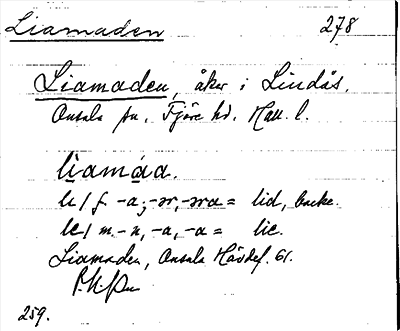 Liamaden 278
Liamaden, åker i Lindås.
Onsala sn, Fjäre hd. Hall. l.
lìamáa.
li / f. -a; -ər, -əra = lid, backe.
le / m. -n, -a, -a = lie.
Liamaden, Onsala Hävdef. 61.
259.